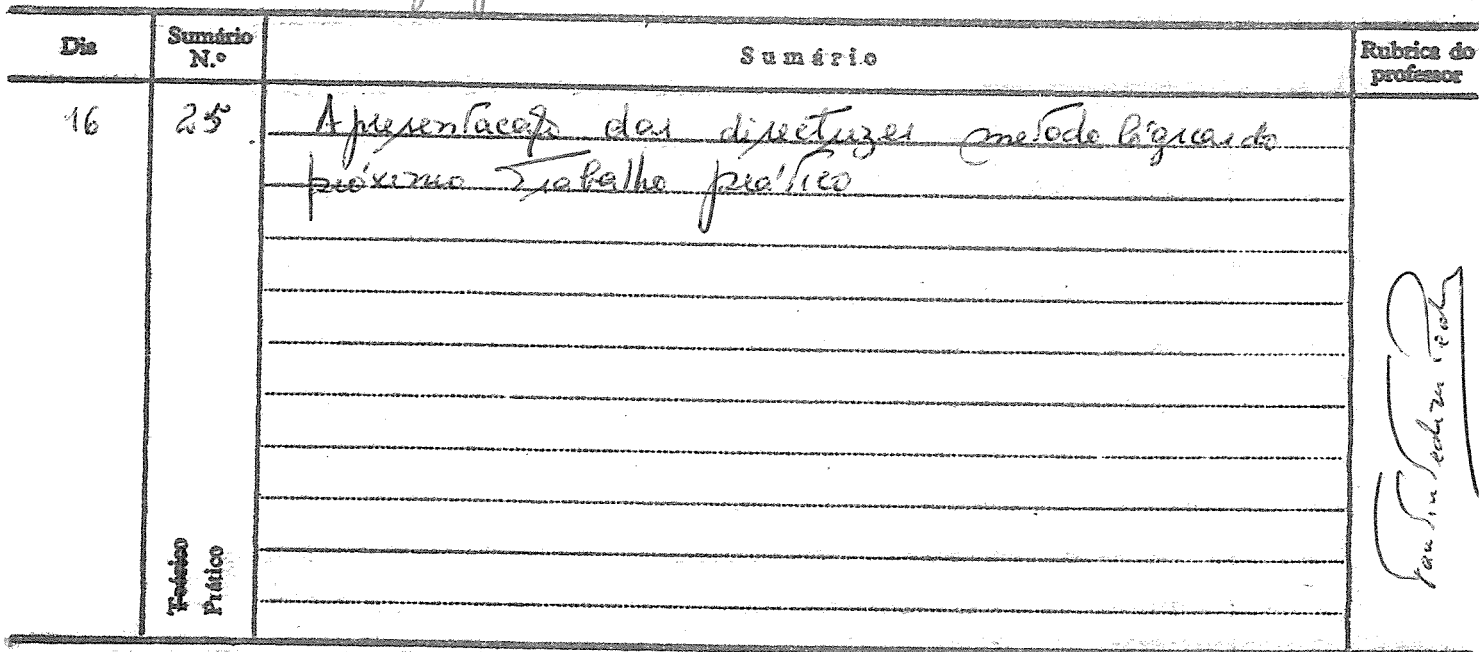 Dia
Sumário N.º
Sumário
Rubrica do professor
16
25
Apresentação das directrizes metodológicas do
próximo Trabalho prático
Teórico
Prático